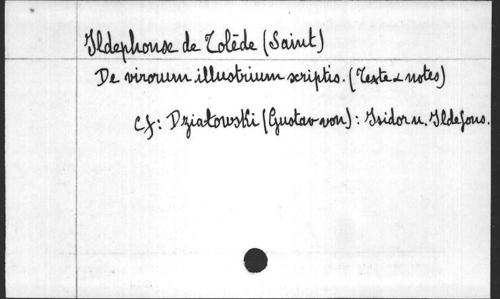 Ildephonse de Tolède (Saint)
De virorum illustrium scriptis. (Texte & notes)
Cf: Dziatowski (Gustav von): Isidor u. Ildefons.